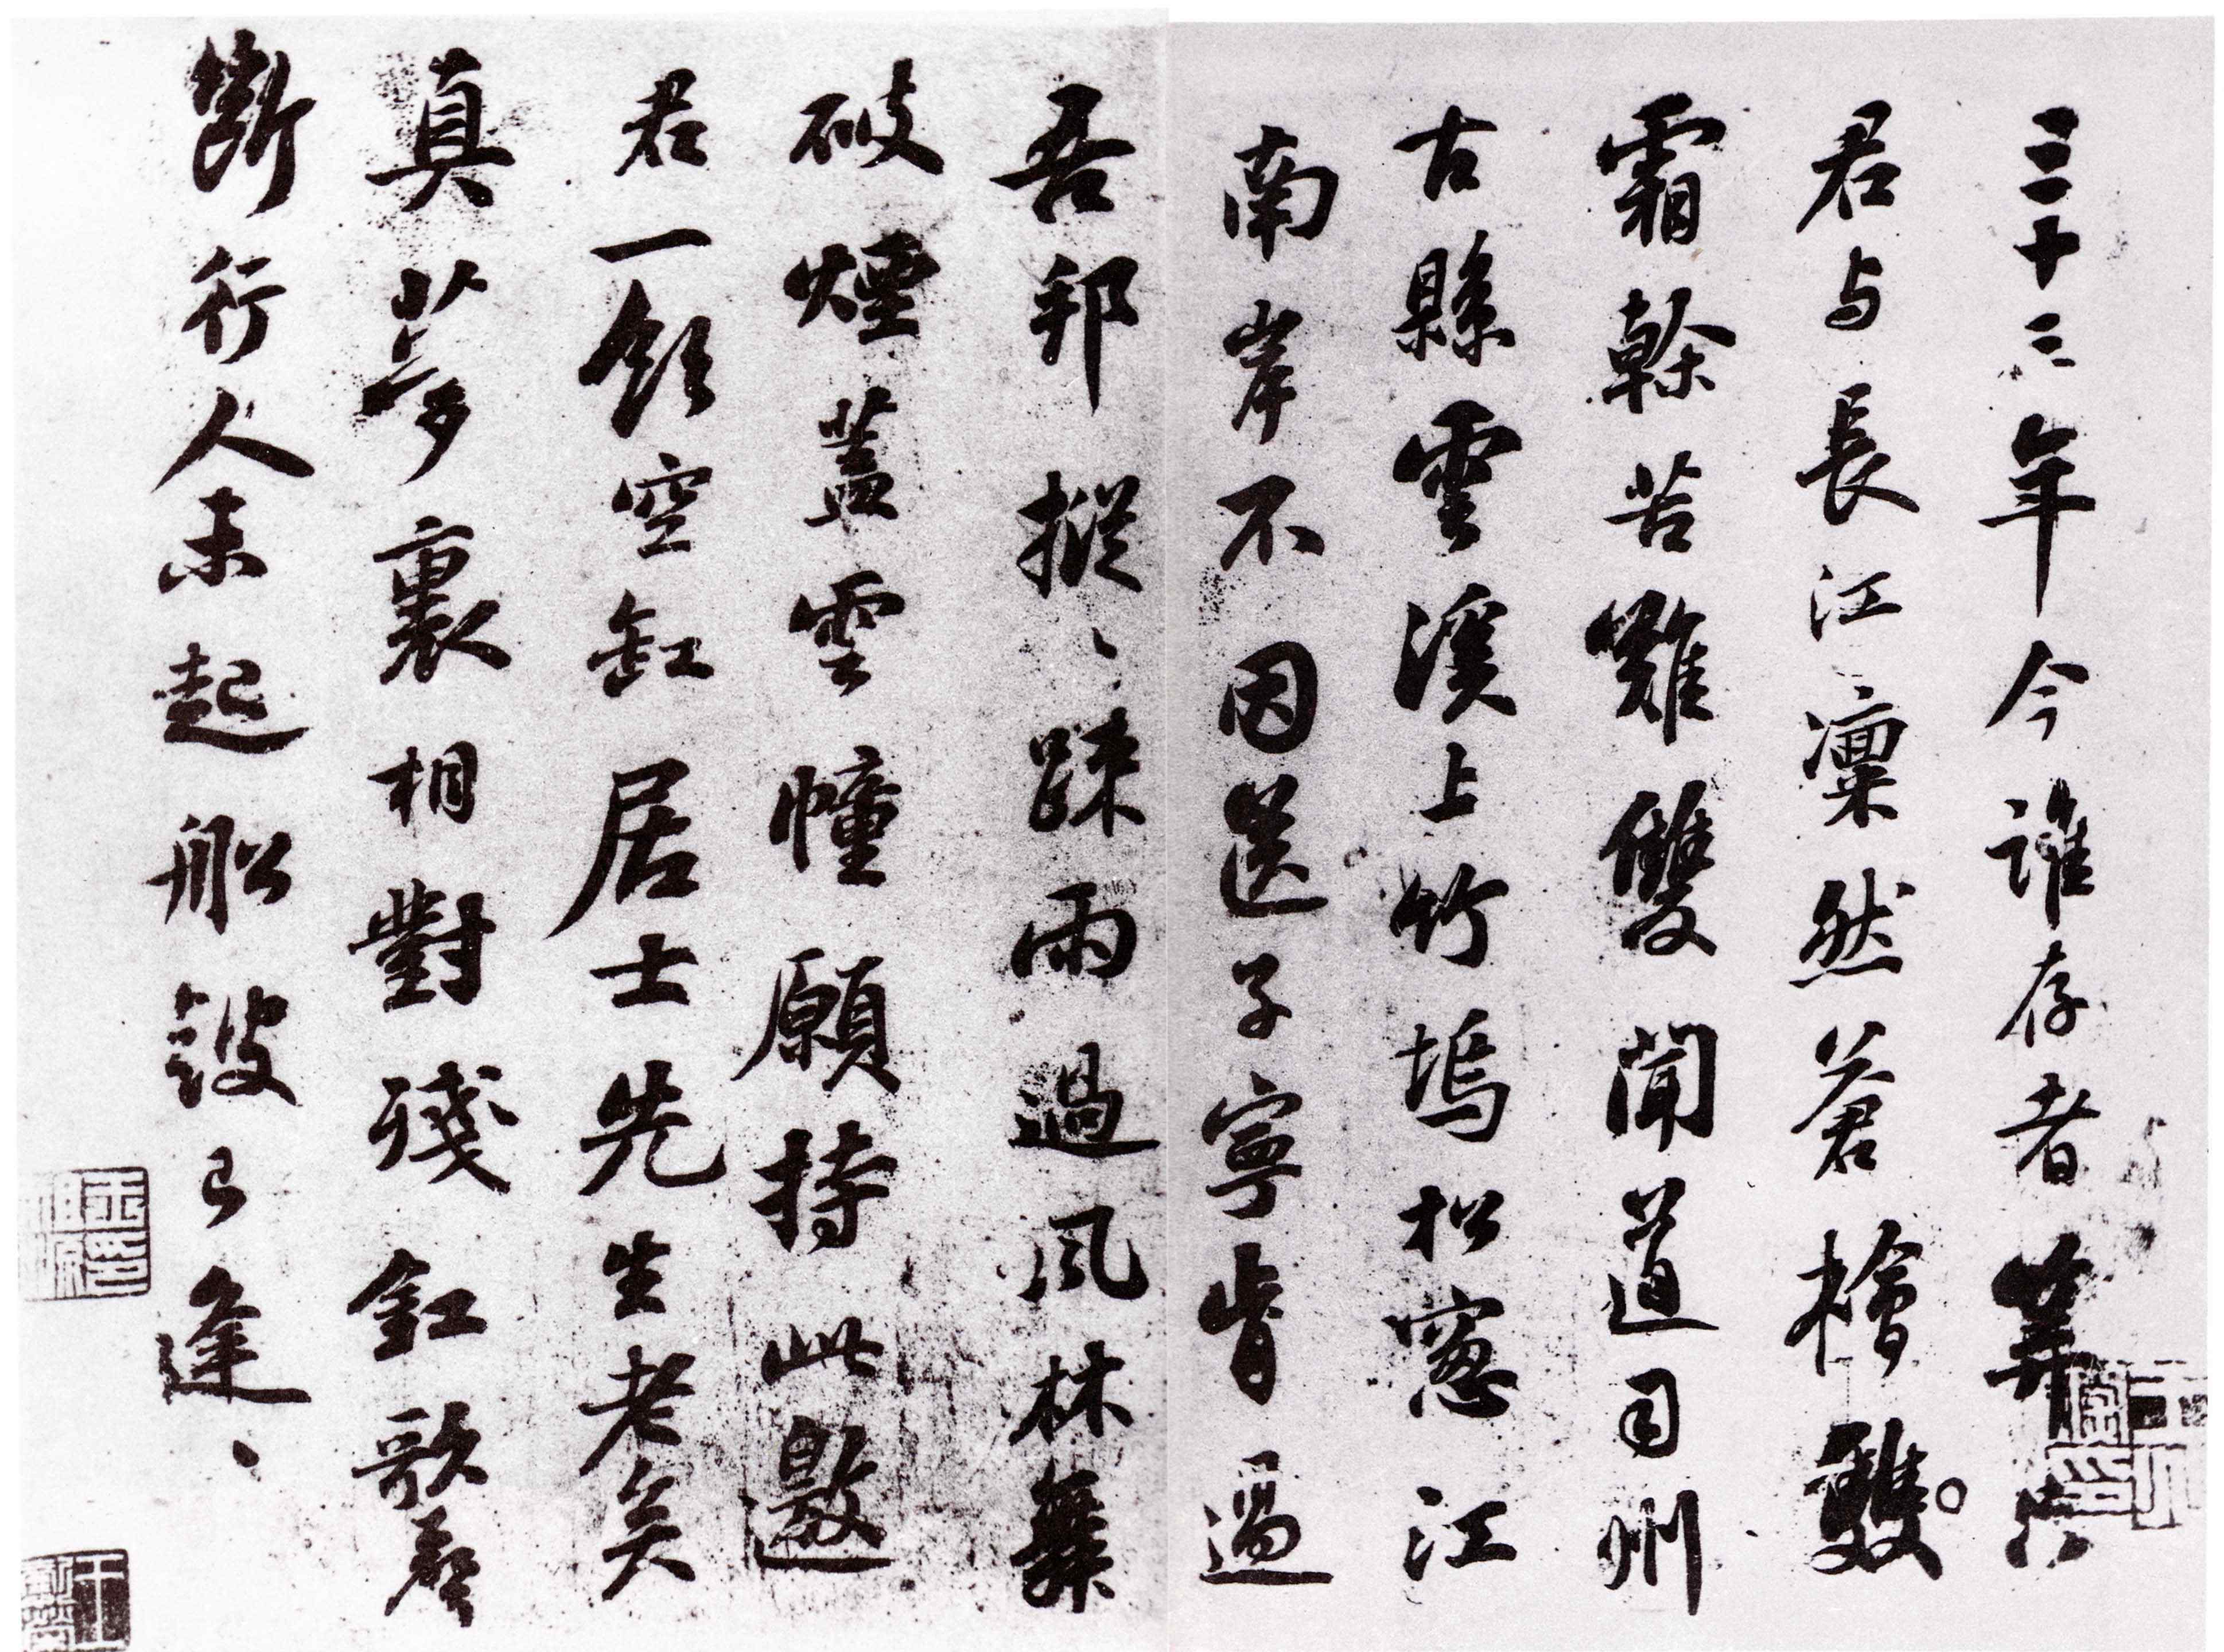 三十三年今誰存者筭只
君与長江凜然蒼檜雙
霜幹苦難雙聞道司州
古縣雲溪上竹塢松窓江
南岸不因送子寧肯過
吾邦摐〻踈雨過風林舞
破煙蓋雲幢願持此邀
君一飲空缸居士先生老矣
真夢裏相對殘釭歌聲
斷行人未起船鼓已逢〻